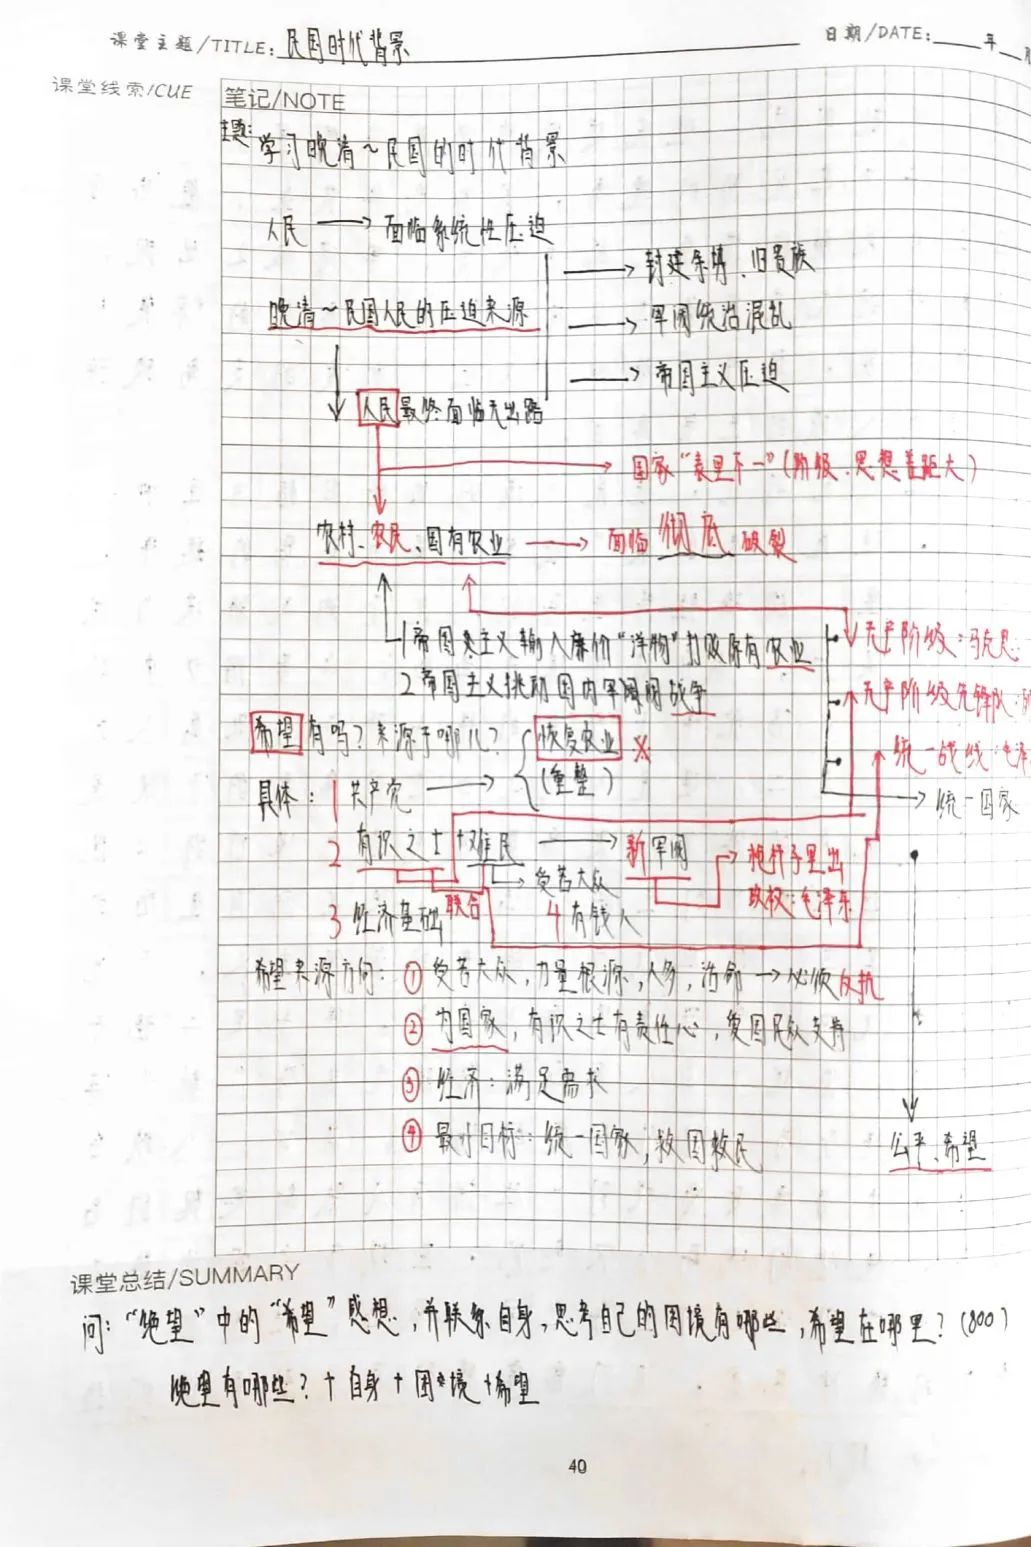 课堂主题/TITLE: 民国时代背景
日期/DATE: 年 月
课堂线索/CUE
笔记/NOTE
主题: 学习晚清~民国的时代背景
人民 → 面临系统性压迫
→ 封建余孽、旧贵族
晚清~民国人民的压迫来源
→ 军阀统治混乱
→ 帝国主义压迫
人民最终面临无出路
→ 国家“表里不一”(阶级、思想差距大)
农村、农民、国有农业 → 面临彻底破裂
1 帝国主义输入廉价“洋物”打败原有农业
无产阶级:马克思
2 帝国主义挑动国内军阀战争
无产阶级先锋队:
希望有吗?来源于哪儿? {恢复农业 ×
统一战线:毛泽
具体: 1 共产党 → (重整)
→ 统一国家
2 有识之士 + 难民 → 新军阀
→ 枪杆子里出
→ 受苦大众
政权:毛泽东
联合
3 经济基础 4 有钱人
希望来源方向: ① 受苦大众,力量根源,人多,活命 → 必须反抗
② 为国家,有识之士有责任心,爱国民众支持
③ 经济:满足需求
④ 最小目标:统一国家,救国救民
公平、希望
课堂总结/SUMMARY
问:“绝望”中的“希望”感想,并联系自身,思考自己的困境有哪些,希望在哪里?(800)
绝望有哪些?+自身+困境+希望
40